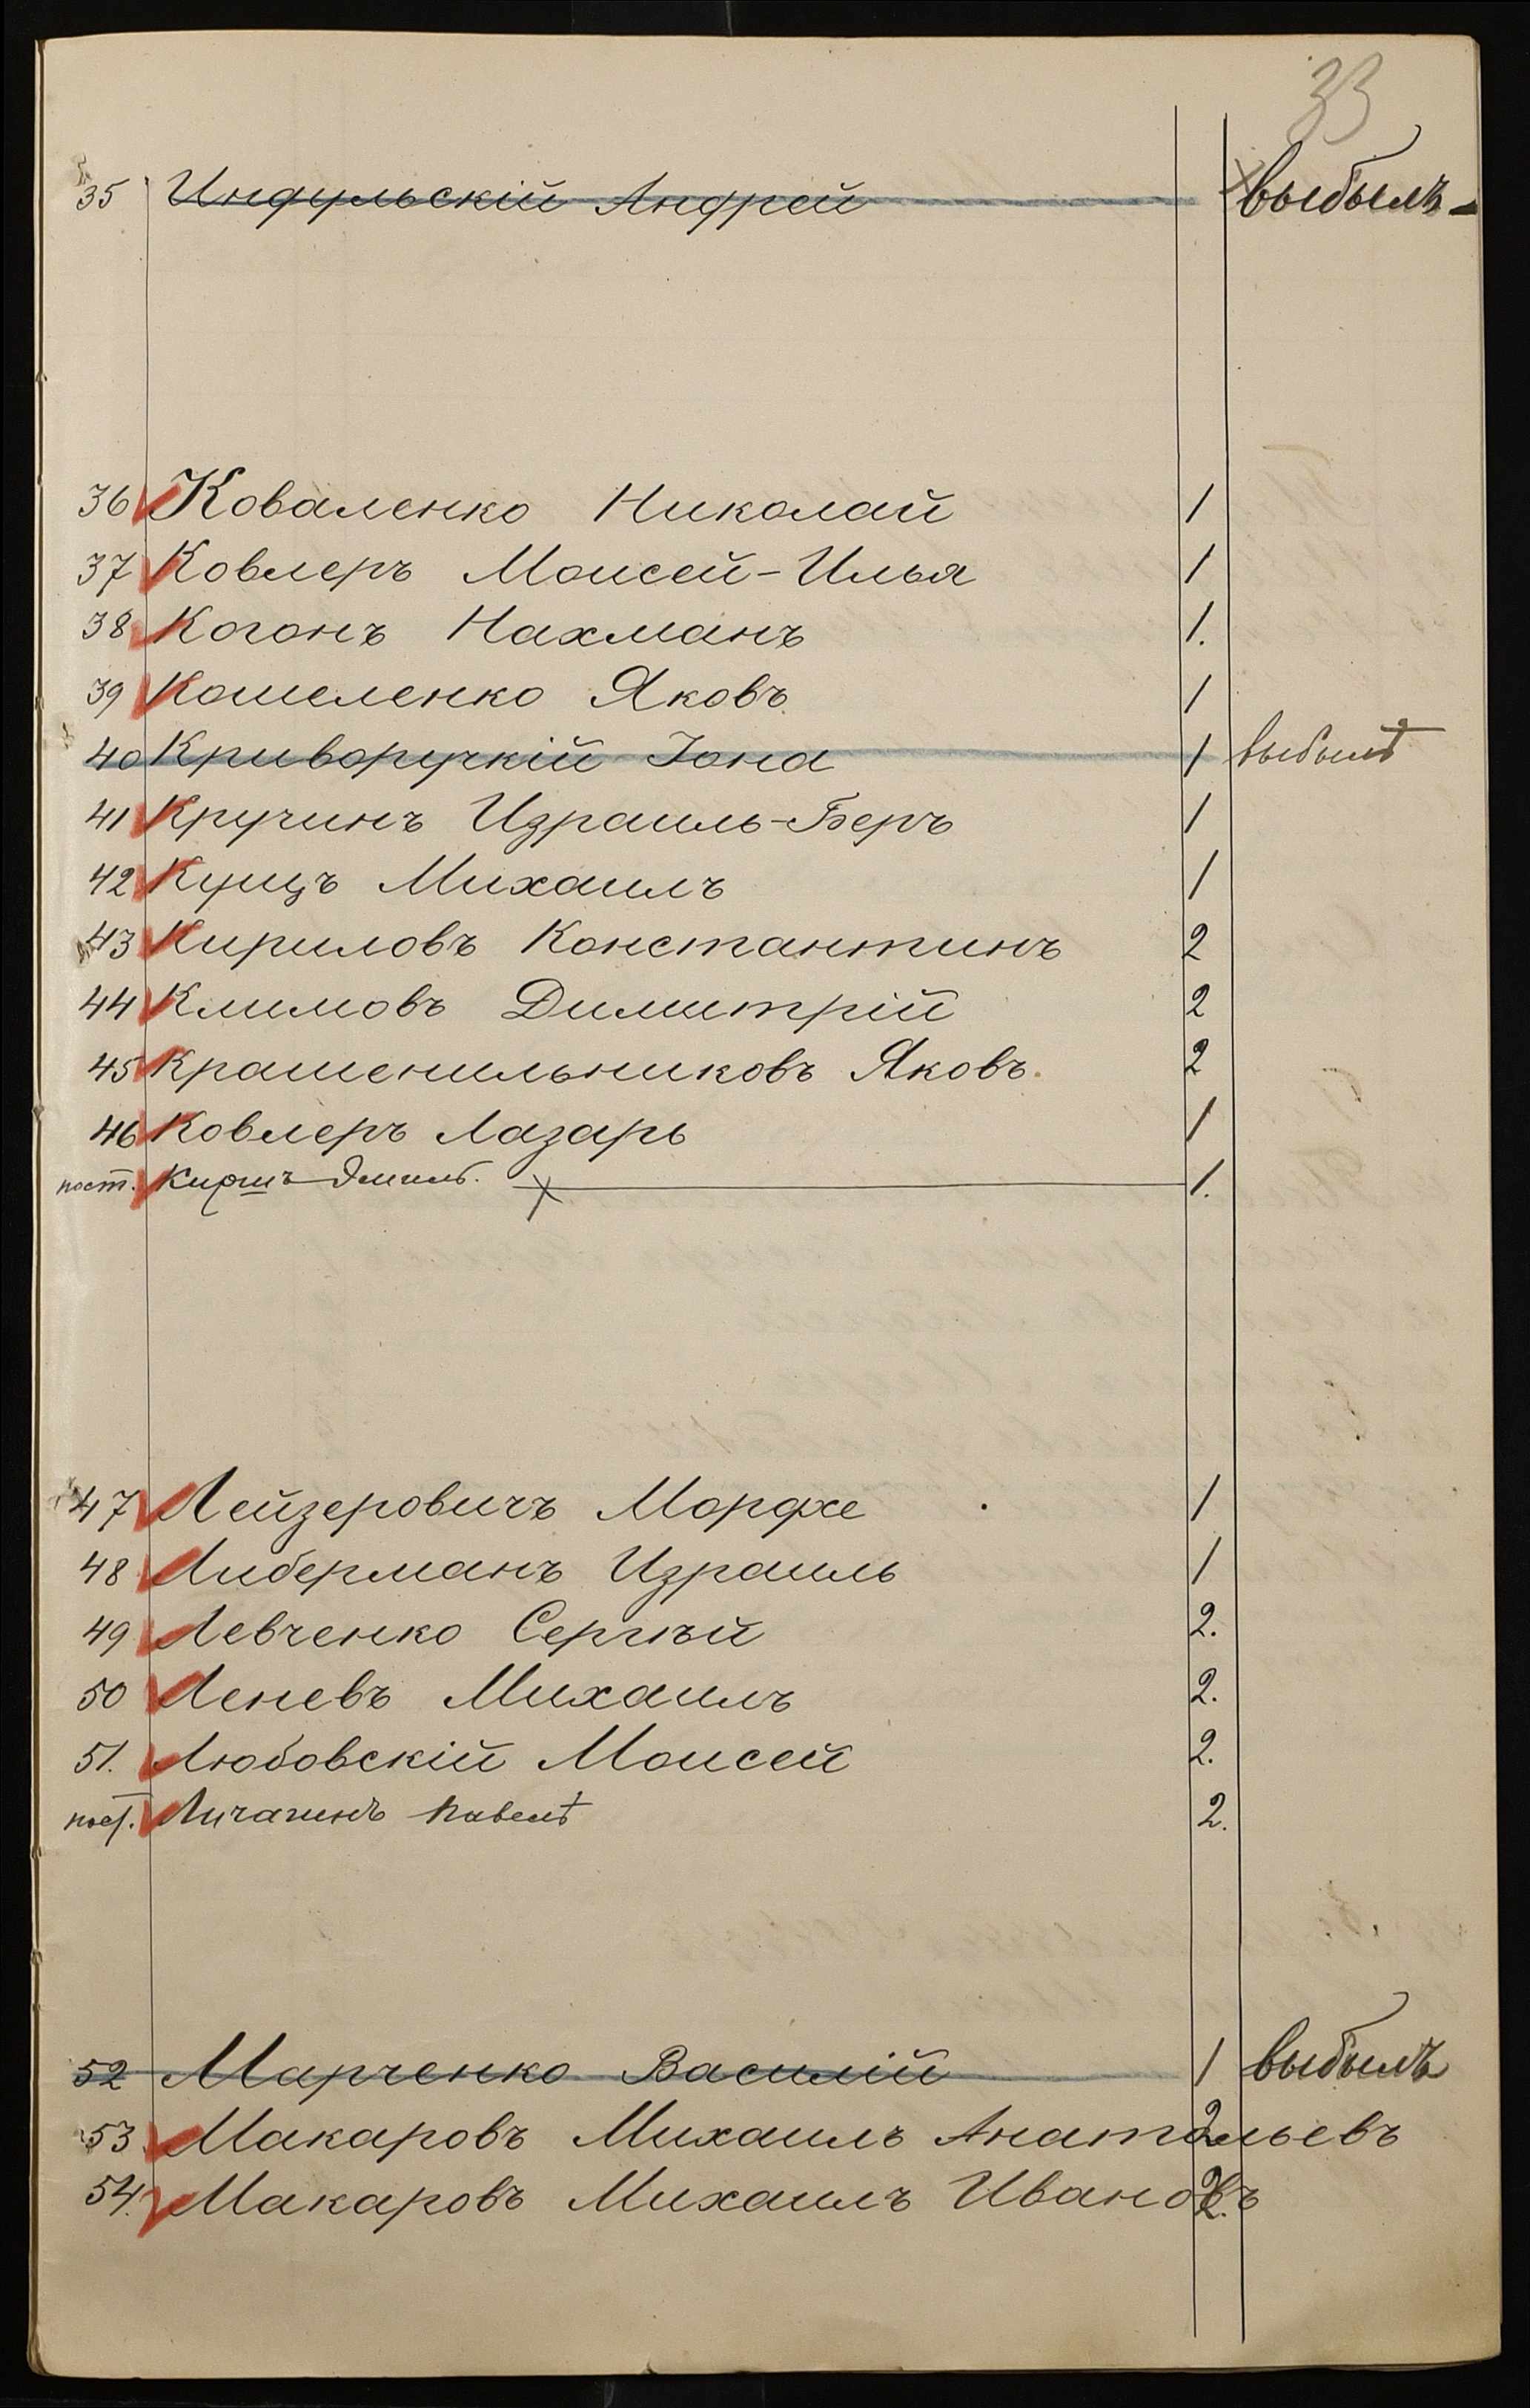 33
35 Индульскій Андрей выбылъ -
36 Коваленко Николай 1
37 Ковлеръ Моисей-Илья 1
38 Когонъ Нахманъ 1.
39 Кошеленко Яковъ 1
40 Криворучкій Іона 1 выбылъ
41 Кручинъ Израиль-Беръ 1
42 Кунцъ Михаилъ 1
43 Кириловъ Константинъ 2
44 Климовъ Димитрій 2
45 Крашенильниковъ Яковъ. 2
46 Ковлеръ Лазарь 1
пост. Киршъ Эмиль. 1.
47 Лейзеровичъ Мордхе 1
48 Либерманъ Израиль 1
49 Левченко Сергѣй 2.
50 Леневъ Михаилъ 2.
51. Любовскій Моисей 2.
пост. Личагинъ Павелъ 2.
52 Марченко Василій 1 выбылъ
53 Макаровъ Михаилъ Анатольевъ 2
54. Макаровъ Михаилъ Ивановъ 2.